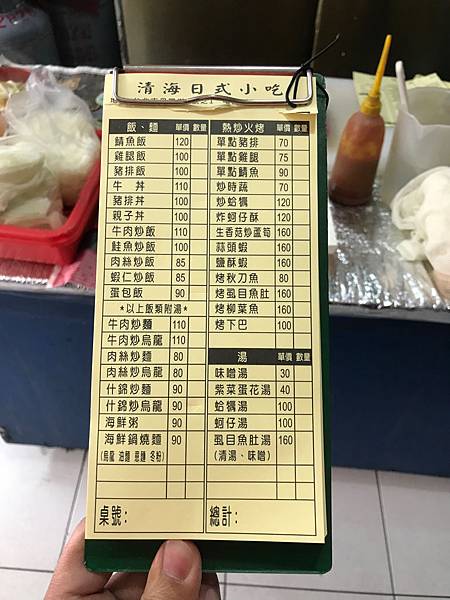 清海日式小吃
飯、麵 單價 數量
鯖魚飯 120
雞腿飯 100
豬排飯 100
牛 丼 110
豬排丼 100
親子丼 100
牛肉炒飯 110
鮭魚炒飯 100
肉絲炒飯 85
蝦仁炒飯 85
蛋包飯 90
*以上飯類附湯*
牛肉炒麵 110
牛肉炒烏龍 110
肉絲炒麵 80
肉絲炒烏龍 80
什錦炒麵 90
什錦炒烏龍 90
海鮮粥 90
海鮮鍋燒麵 90
(烏龍 油麵 意麵 冬粉)
桌號:
熱炒火烤 單價 數量
單點豬排 70
單點雞腿 75
單點鯖魚 90
炒時蔬 70
炒蛤犡 120
炸蚵仔酥 120
生香菇炒蘆筍 160
蒜頭蝦 160
鹽酥蝦 160
烤秋刀魚 80
烤虱目魚肚 160
烤柳葉魚 160
烤下巴 100
湯 單價 數量
味噌湯 30
紫菜蛋花湯 40
蛤犡湯 100
蚵仔湯 100
虱目魚肚湯 160
(清湯、味噌)
總計: